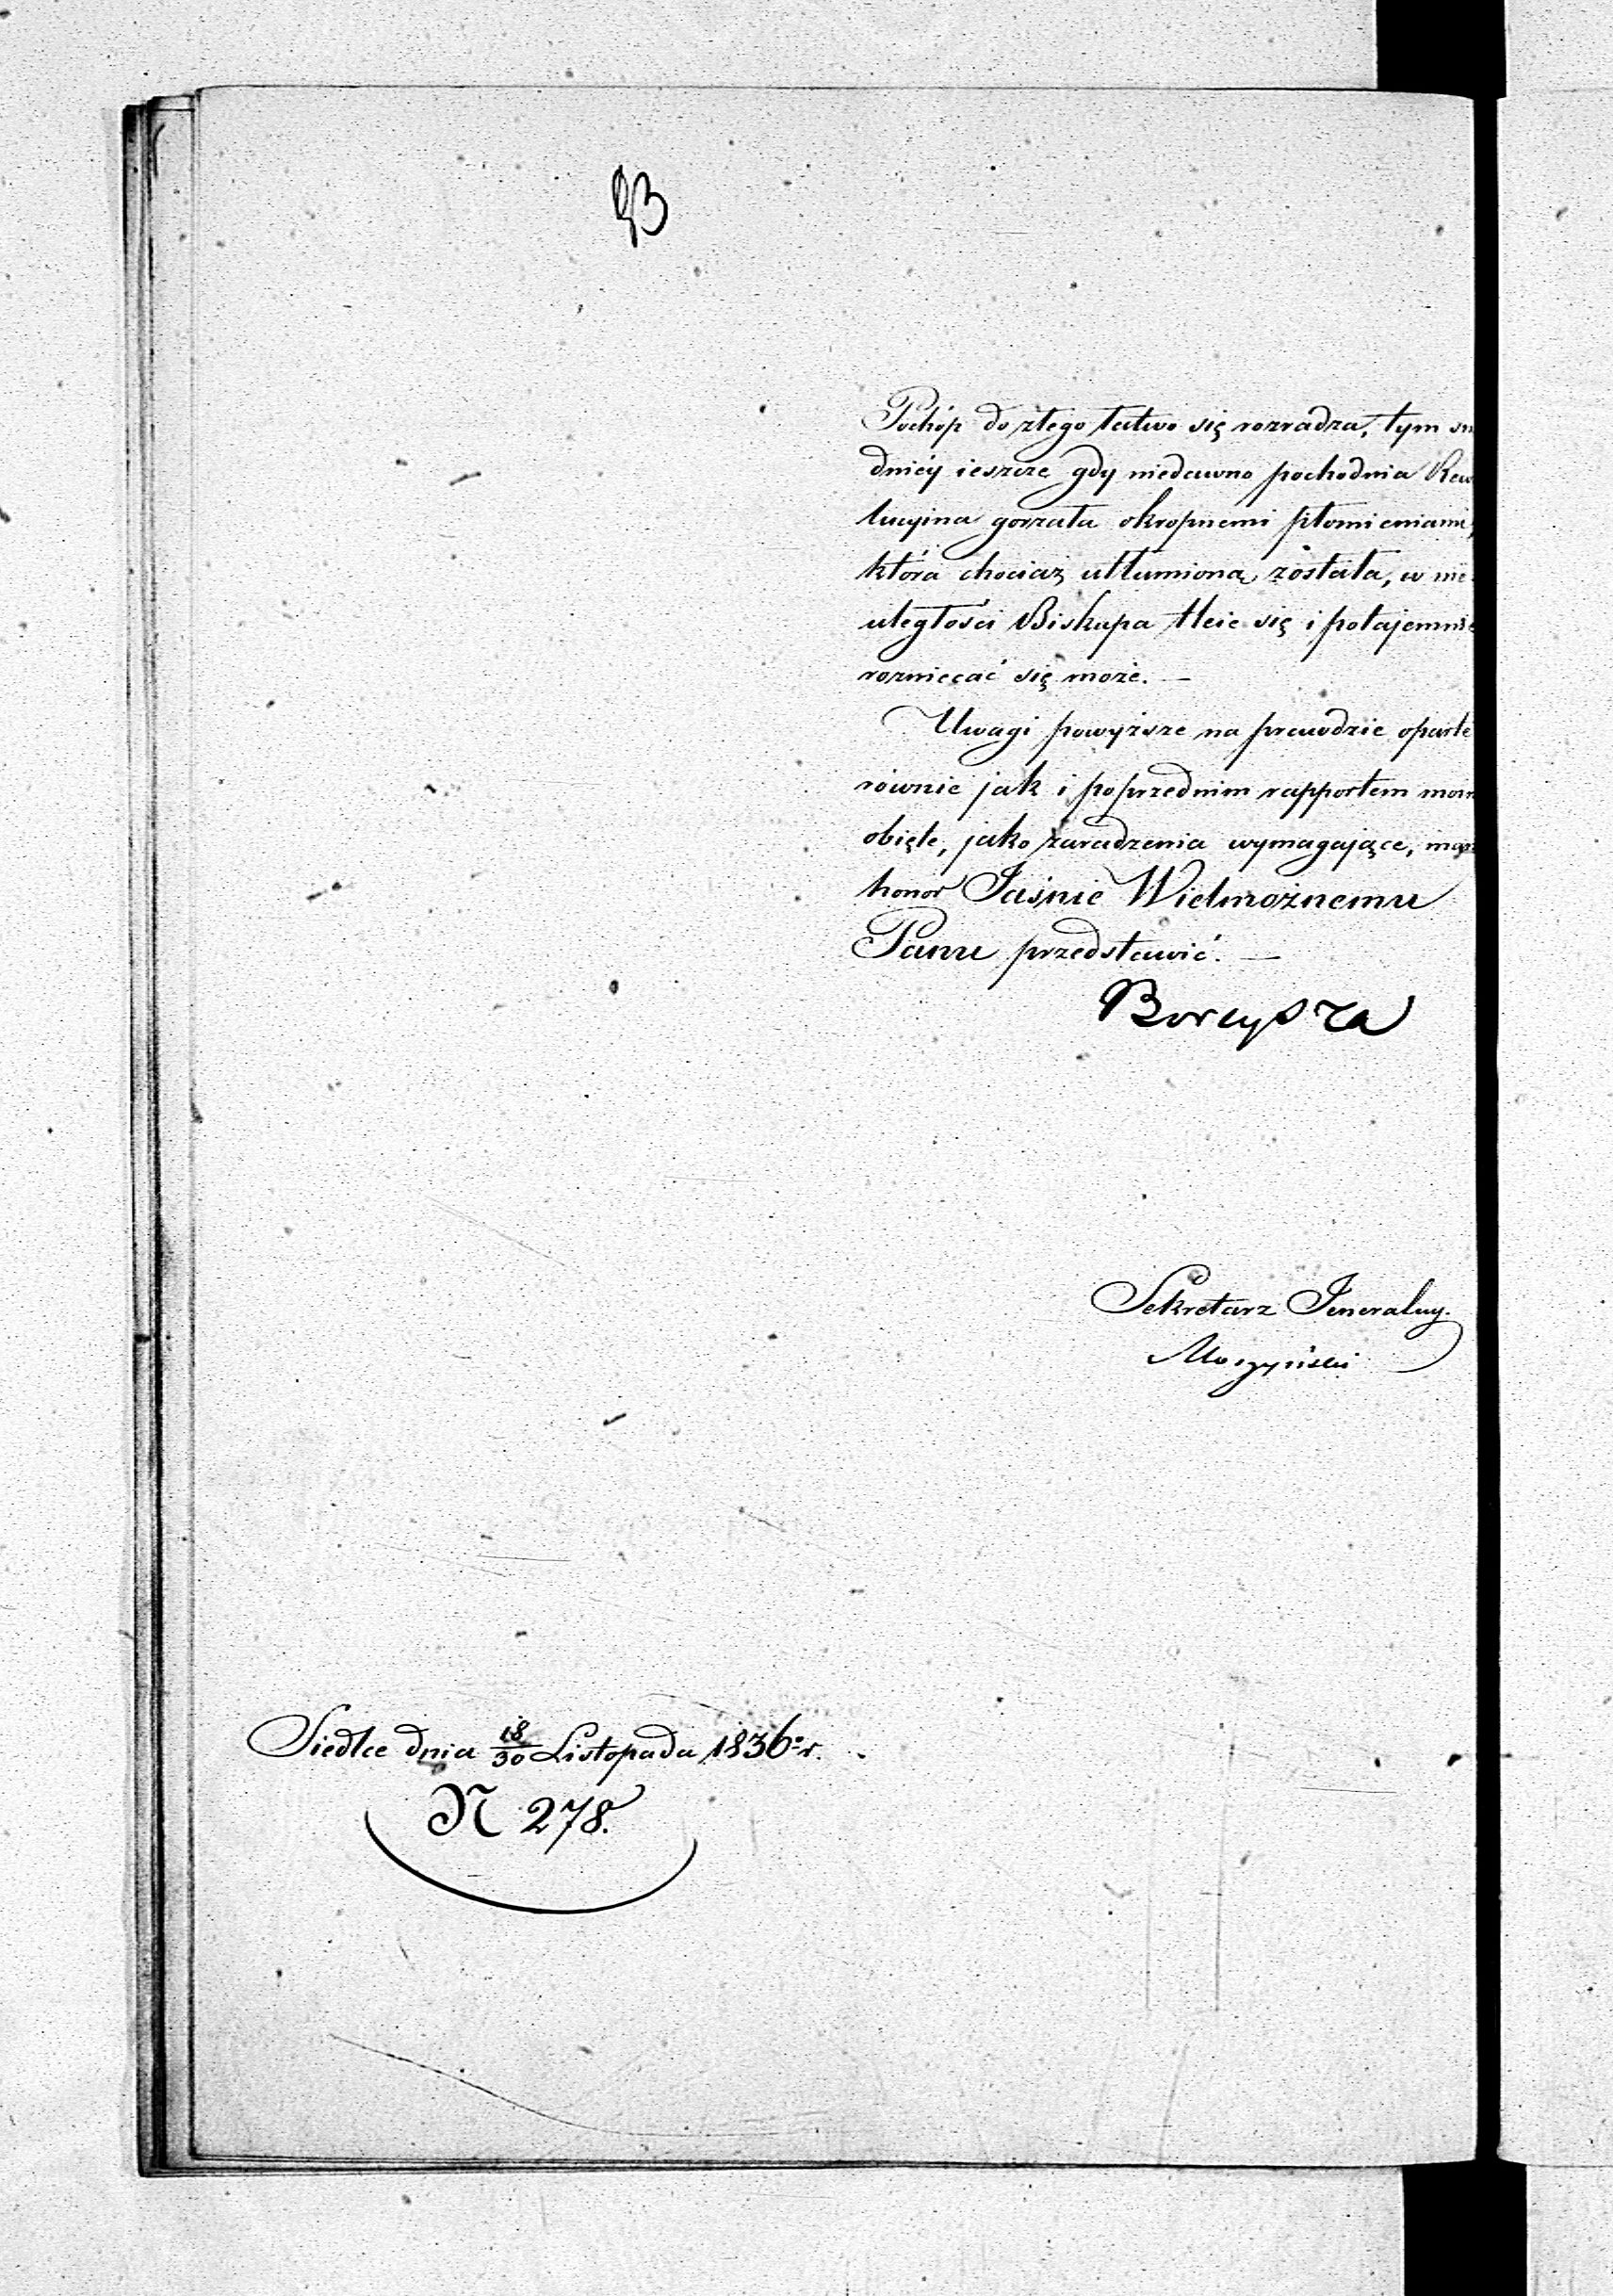 Pochóp do złego łatwo się rozradza, tym sn
dniéy ieszcze gdy niedawno pochodnia Rew
lucyina gorzała okropnemi płomieniami,
która chociaż utłumioną została, w nie
uległości Biskupa tleie się i potajemnie
rozniecać się może. —
Uwagi powyższe na prawdzie oparte
równie jak i poprzednim rapportem moim
obięte, jako zaradzenia wymagające, mam
honor Jaśnie Wielmożnemu
Panu przedstawić. —
Sekretarz Jeneralny.
Siedlce dnia 18/30 Listopada 1836 r.
N 278.